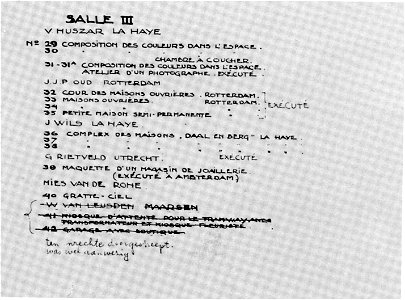 SALLE III
V HUSZAR LA HAYE
Nos 29 COMPOSITION DES COULEURS DANS L'ESPACE.
30 " " " " "
CHAMBRE À COUCHER.
31-31A COMPOSITION DES COULEURS DANS L'ESPACE.
ATELIER D'UN PHOTOGRAPHE. EXÉCUTÉ.
J.J.P OUD ROTTERDAM
32 COUR DES MAISONS OUVRIÈRES. ROTTERDAM.
33 MAISONS OUVRIÈRES. ROTTERDAM. EXÉCUTÉ
34 " " "
35 PETITE MAISON SEMI-PERMANENTE "
J WILS LA HAYE
36 COMPLEX DES MAISONS "DAAL EN BERG" LA HAYE.
37 " " " " " "
38 " " " " " "
G RIETVELD UTRECHT. EXÉCUTÉ
39 MAQUETTE D'UN MAGASIN DE JOAILLERIE
(EXÉCUTÉ A AMSTERDAM)
MIES VAN DE ROHE
40 GRATTE-CIEL
W VAN LEUSDEN MAARSEN
41 KIOSQUE D'ATTENTE POUR LE TRAMWAY AVEC
TRANSFORMATEUR ET KIOSQUE FLEURISTE
42 GARAGE AVEC BOUTIQUE.
ten onrechte doorgestreept.
was wel aanwezig